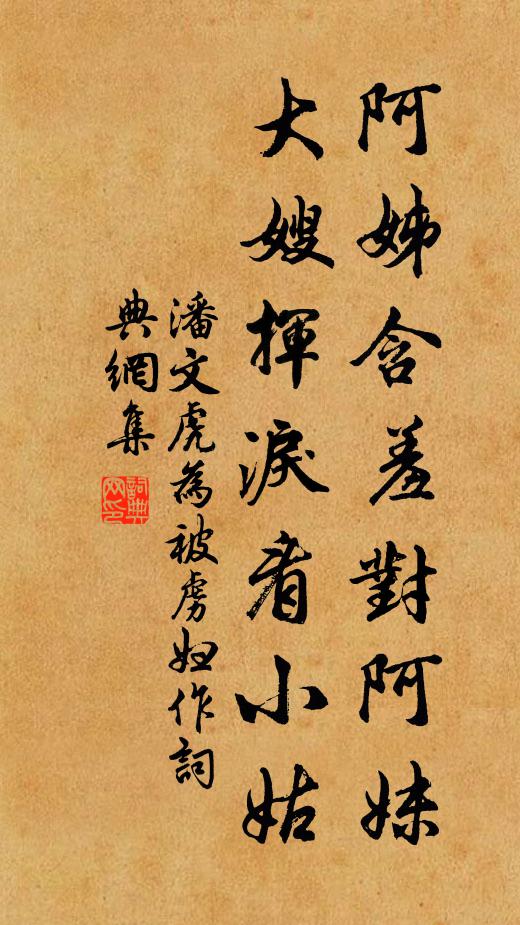 阿姊含羞對阿妹
大嫂揮淚看小姑
潘文虎為被虜妇作詞
典網集
詞典
网印